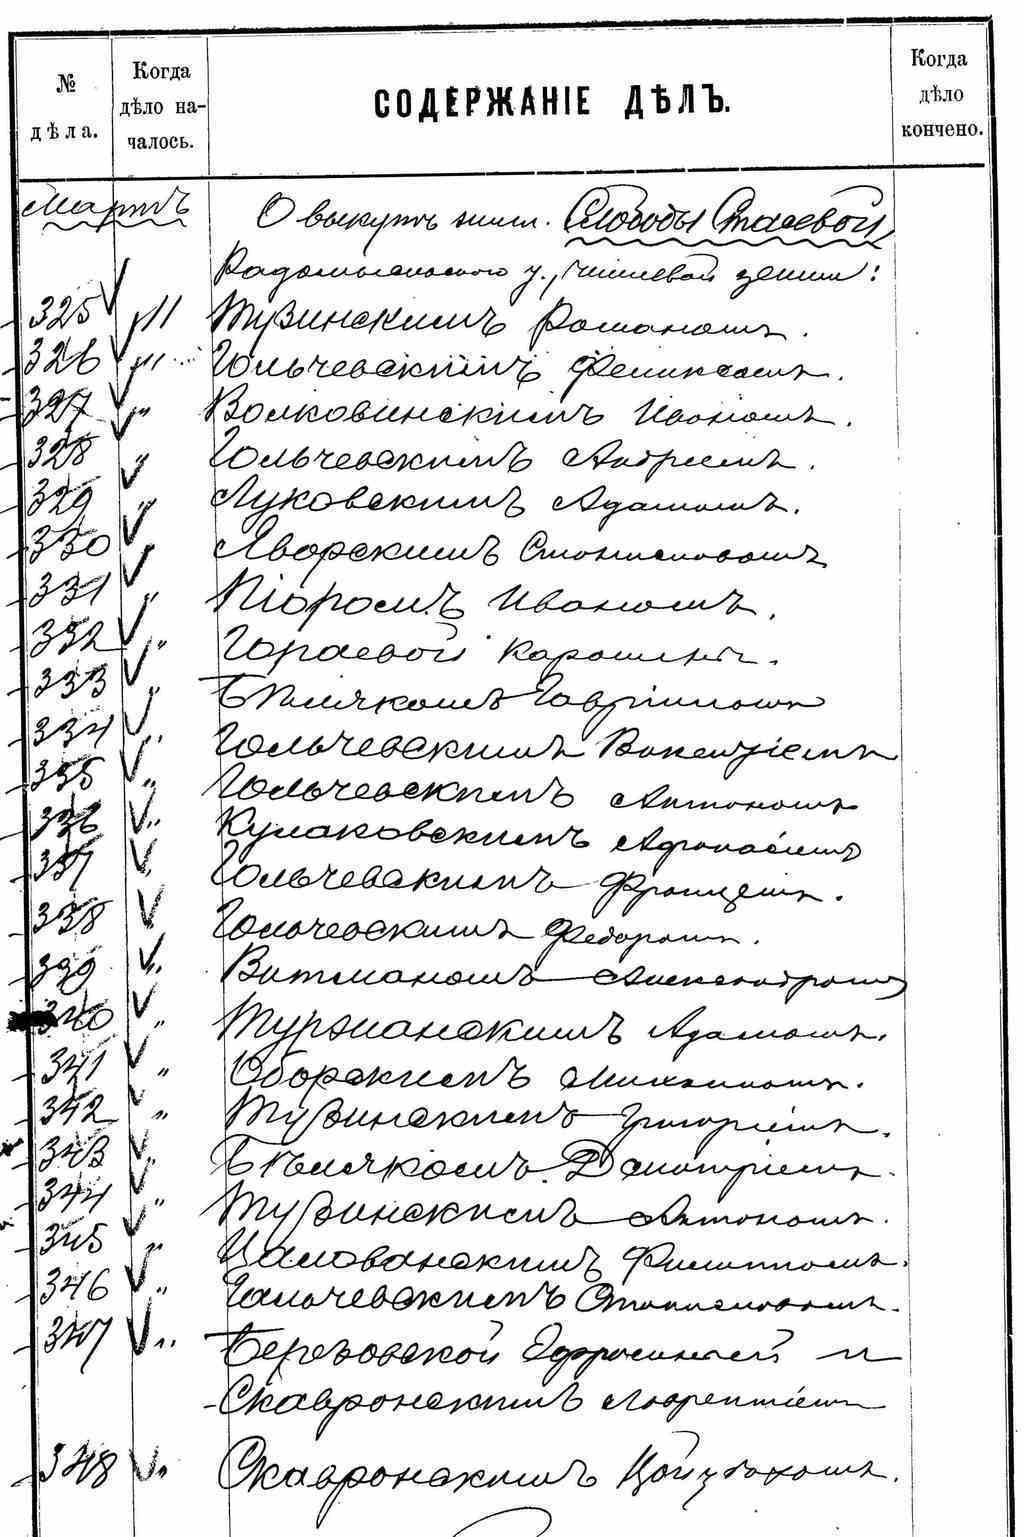 № дѣла.
Когда дѣло на-чалось.
СОДЕРЖАНІЕ ДѢЛЪ.
Когда дѣло кончено.
Мартъ
О выкупѣ жит. Слободы Стаевой
Радомысльскаго у., чиншевой земли:
325 11 Тузинскимъ Романомъ.
326 11 Гольчевскимъ Феликсомъ.
327 " Волковинскимъ Иваномъ.
328 " Гольчевскимъ Андреемъ.
329 " Луковскимъ Адамомъ.
330 " Яворскимъ Станиславомъ
331 " Піоромъ Иваномъ.
332 " Гораевой
333 " Бѣлячкомъ Гавріиломъ
334 " Гольчевскимъ Викентіемъ
335 " Гольчевскимъ Антономъ
336 " Кулаковскимъ Афанасіемъ
337 " Гольчевскимъ Францемъ.
338 Гольчевскимъ Федоромъ.
339 " Витманомъ Александромъ
340 " Туржанскимъ Адамомъ.
341 " Оборскимъ Михаиломъ.
342 " Тузинскимъ Григоріемъ.
343 " Бѣлячкомъ Дмитріемъ.
344 " Тузинскимъ Антономъ.
345 " Цалованскимъ Филиппомъ.
346 " Гальчевскимъ Станиславомъ.
347 " Березовской Ефросиніей и
Скавронскимъ Лаврентіемъ
348 " Скавронскимъ